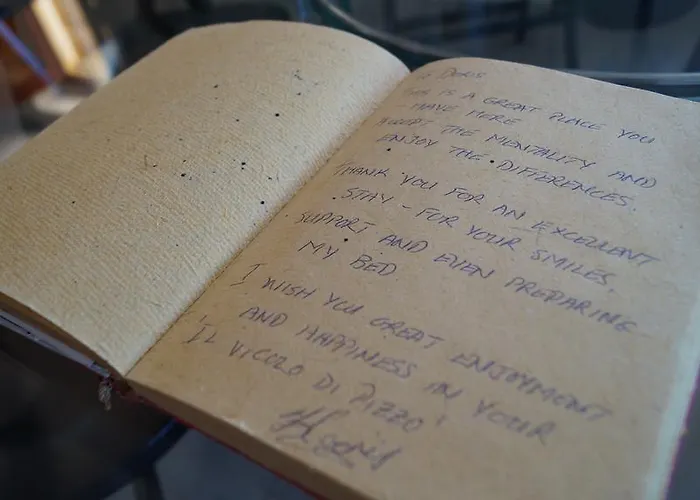 DORIS
THIS IS A GREAT PLACE YOU
HAVE HERE
ACCEPT THE MENTALITY AND
ENJOY THE DIFFERENCES.
THANK YOU FOR AN EXCELLENT
STAY - FOR YOUR SMILES,
SUPPORT AND EVEN PREPARING
MY BED
I WISH YOU GREAT ENJOYMENT
AND HAPPINESS IN YOUR
IL VICOLO DI PIZZO!